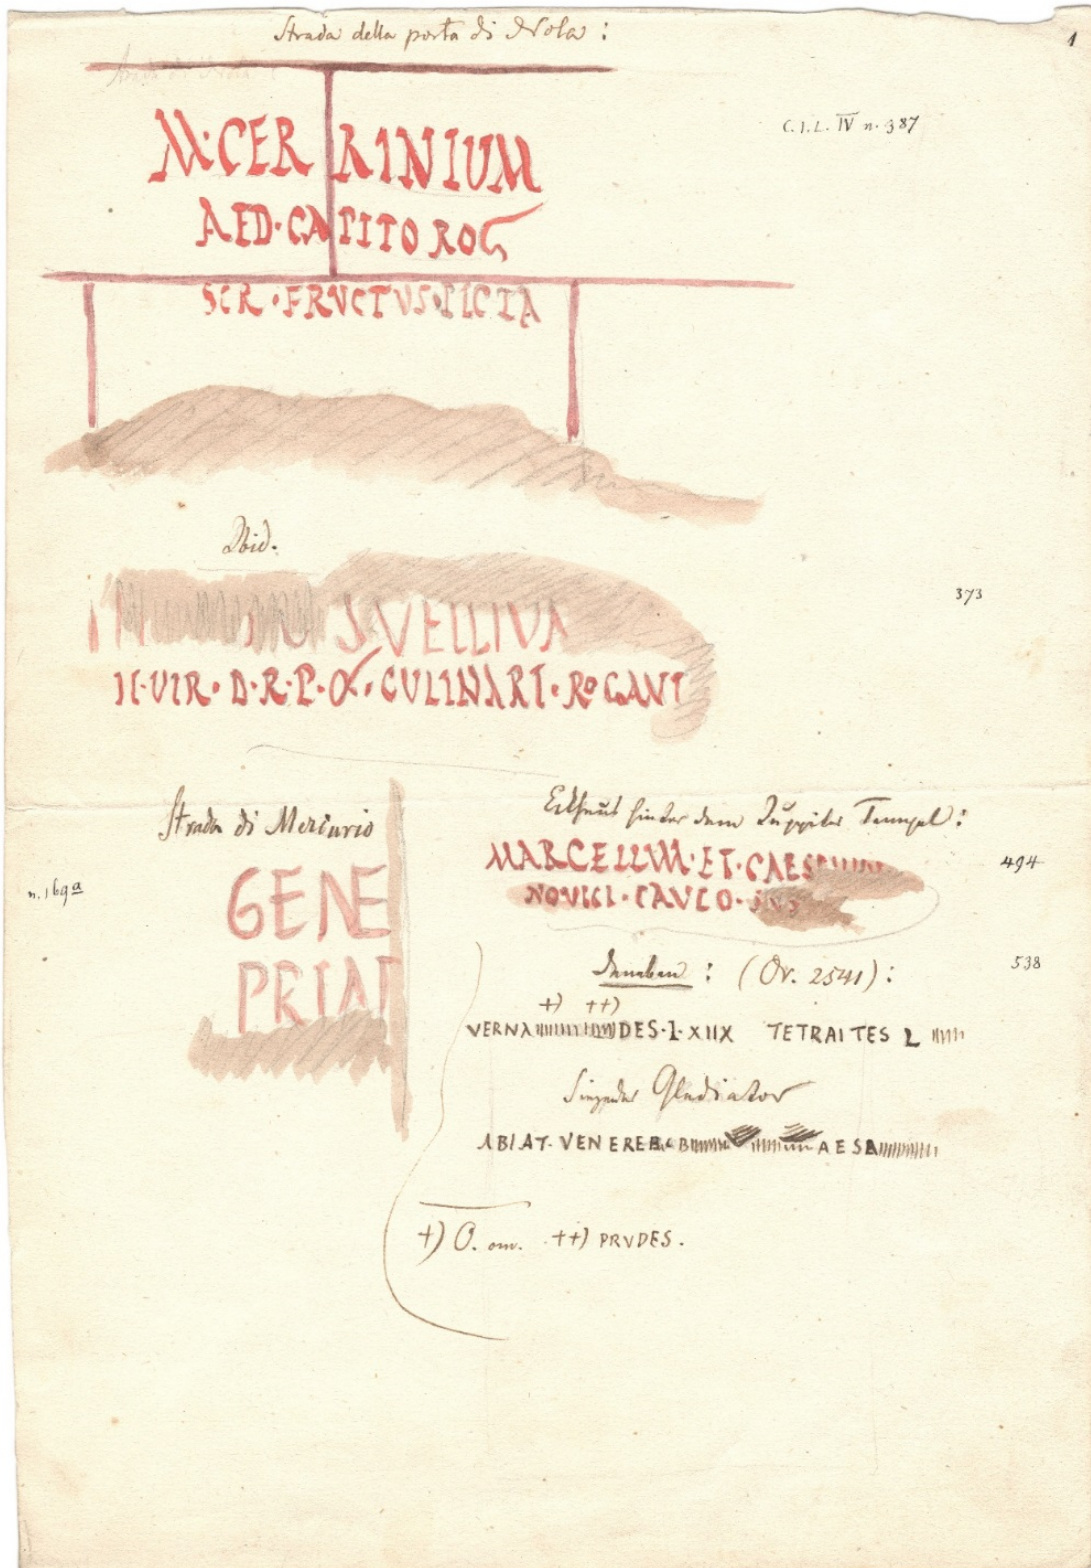 Strada della porta di Nola:
1
C.I.L. IV n. 387
M·CERRINIUM
AED·CAPITO ROG
SCR·FRVCTVS·PICTA
Ibid.
373
SVELLIVM
II·VIR·D·R·P·CULINARI·ROGANT
Strada di Mercurio
n. 169a
GENE
PRIAT
Eckhaus hinter dem Juppiter Tempel:
MARCELLVM·ET·CAES
494
NOVICI·CAVCO·
daneben: (Or. 2541):
538
+) ++)
VERNA DES·1·XIIX TETRAITES L
Gladiator
ABIAT·VENERE AESA
+) O. om. ++) PRVDES.